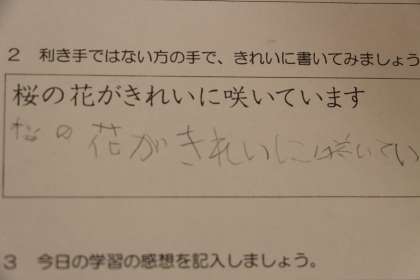 2 利き手ではない方の手で、きれいに書いてみましょう
桜の花がきれいに咲いています
桜の花がきれいに咲いてい
3 今日の学習の感想を記入しましょう。